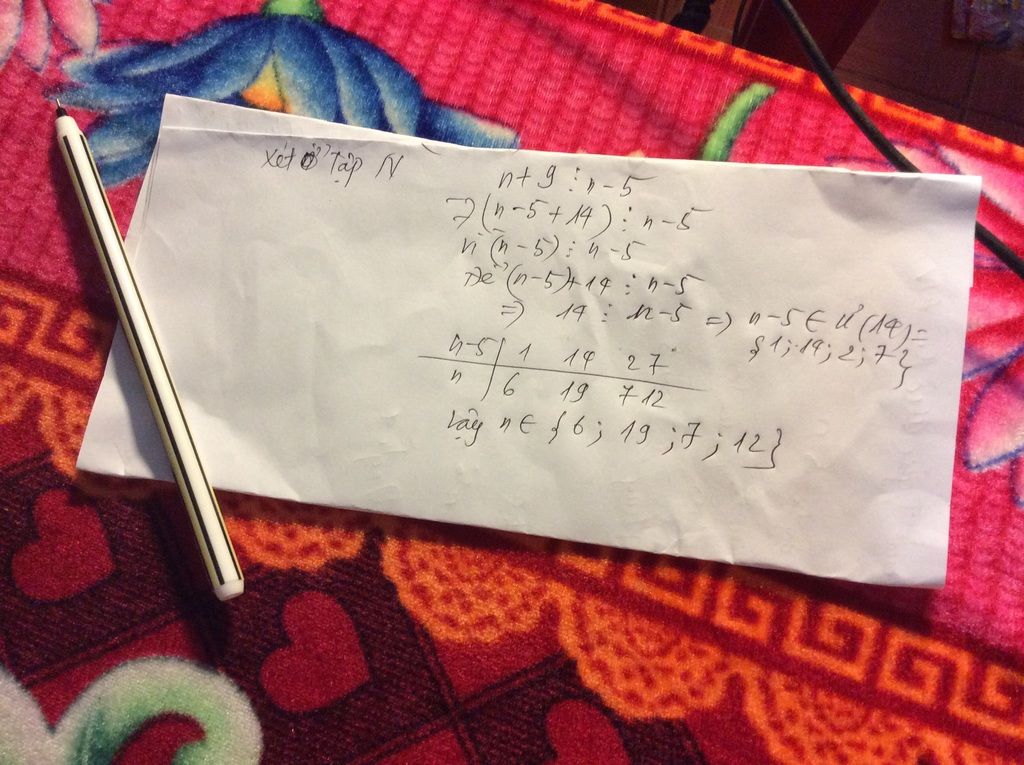 Xét ở tập N
n+9 ⋮ n-5
⇒ (n-5+14) ⋮ n-5
vì (n-5) ⋮ n-5
Để (n-5)+14 ⋮ n-5
⇒ 14 ⋮ n-5 ⇒ n-5 ∈ Ư(14) =
{1; 14; 2; 7}
n-5 | 1 14 2 7
n | 6 19 7 12
Vậy n ∈ {6; 19; 7; 12}